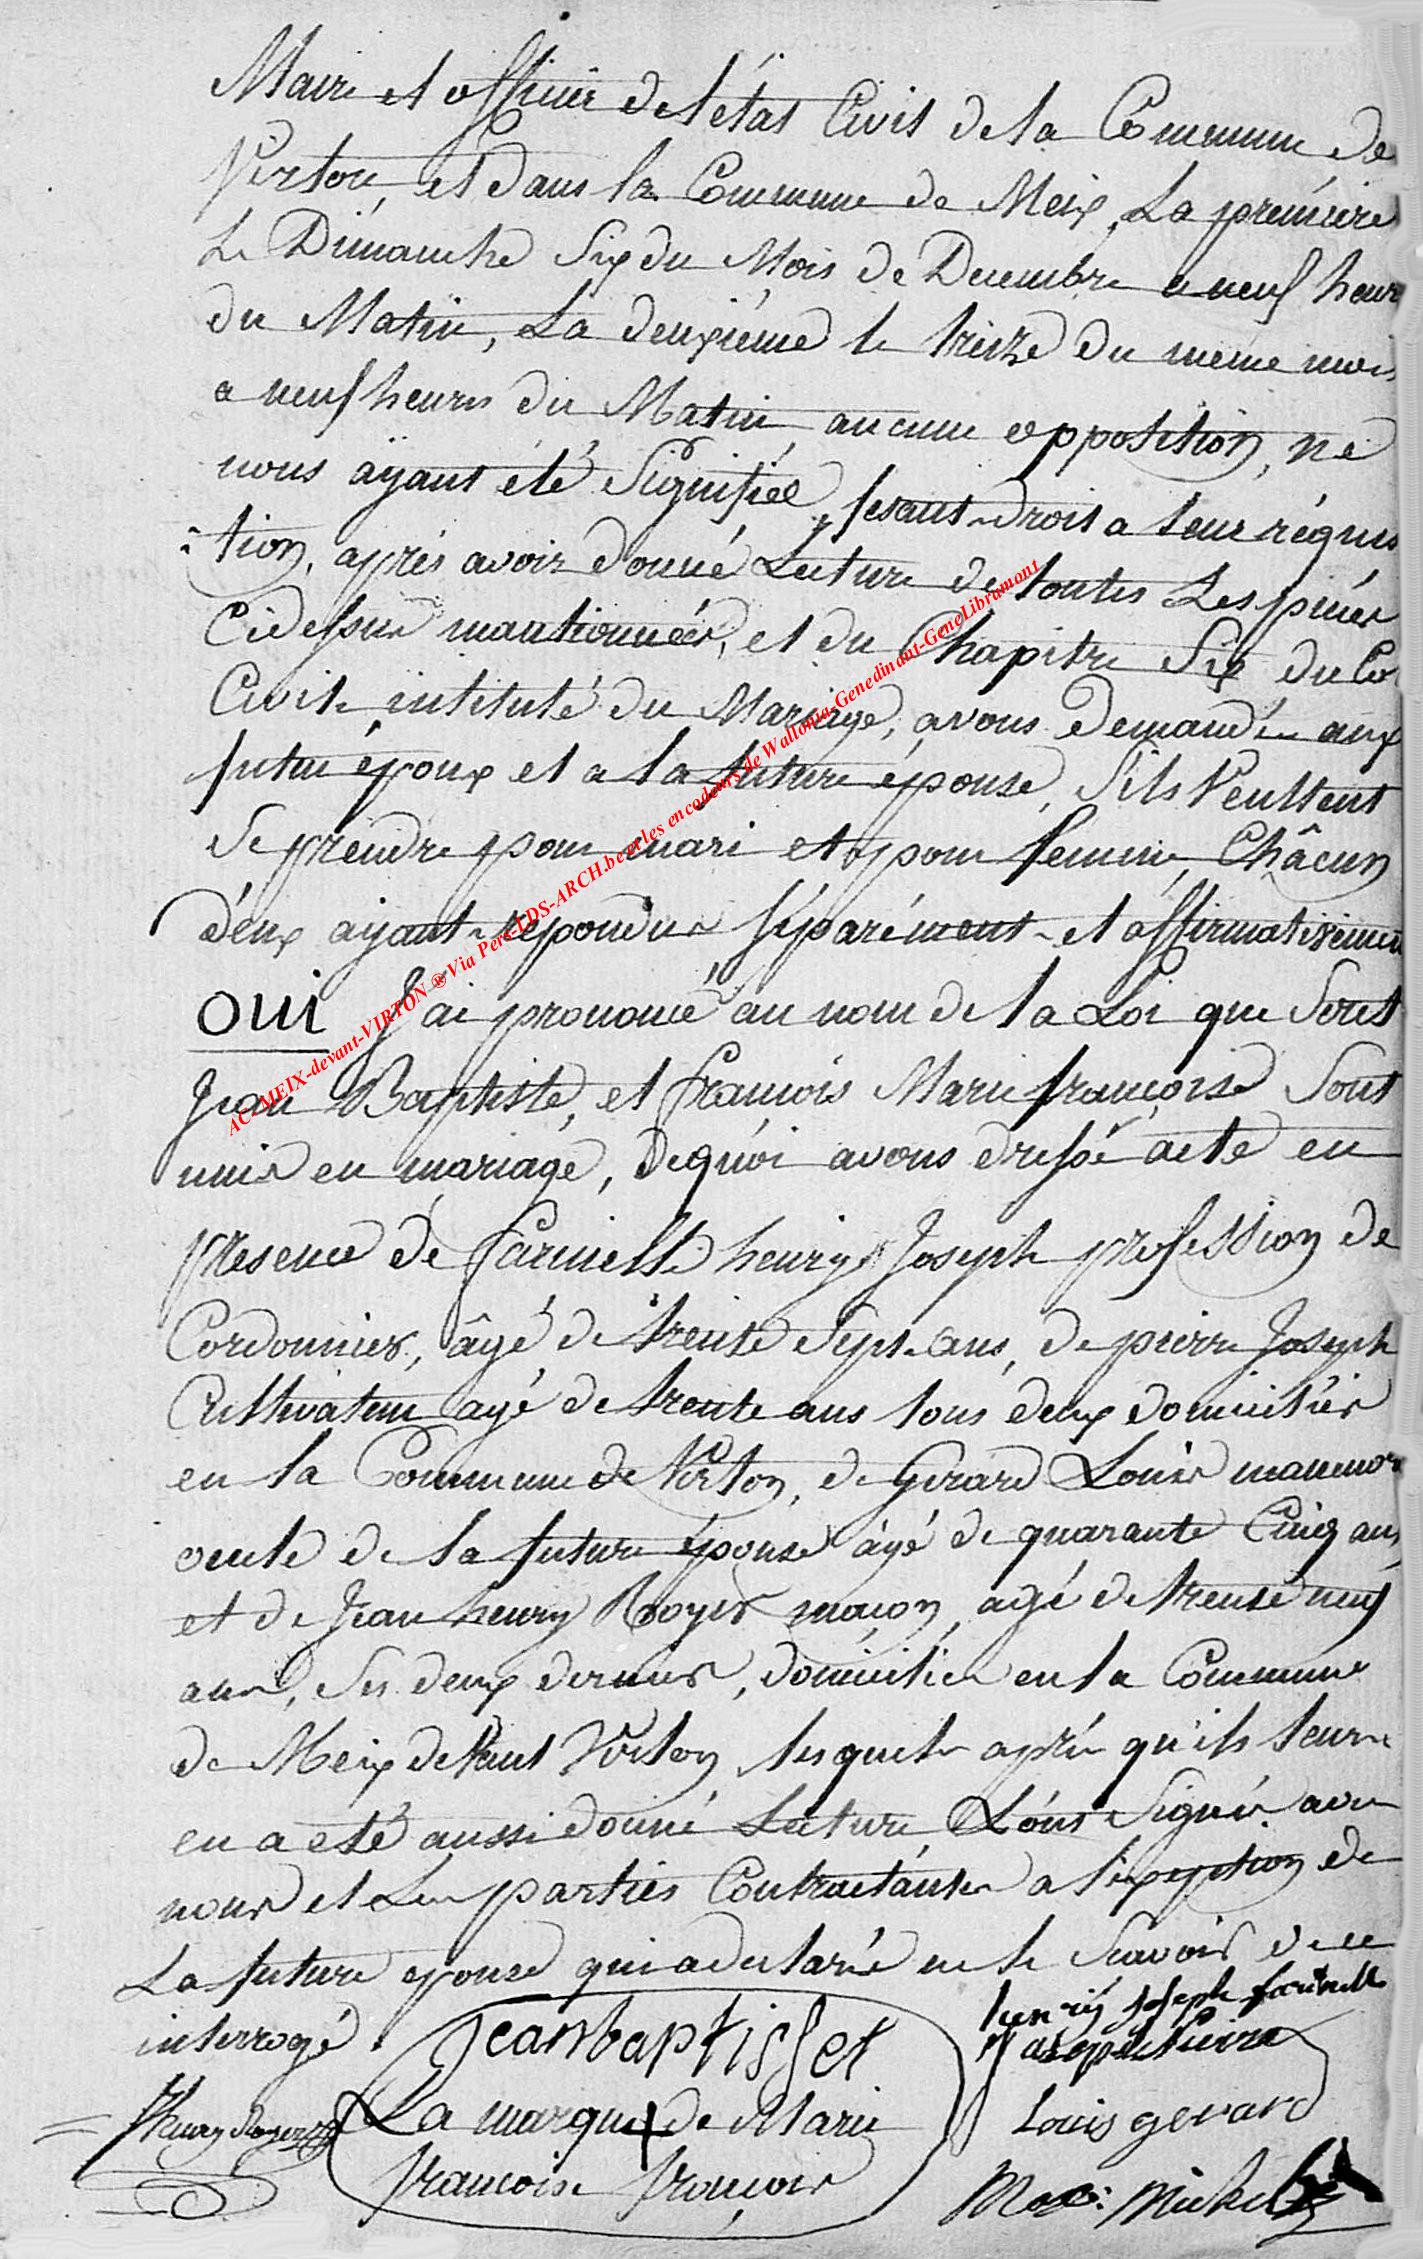 Maire et officier de l'état Civil de la Commune de
Virton, et Dans la Commune de Meix, La premiere
Le Dimanche Six du Mois de Decembre a neuf heur
du Matin, La deuxiéme le treize du meme moi
a neuf heures du Matin, aucune opposition, ne
nous ayant été Signifiée, fesant-droit a leur réquis
-tion, aprés avoir donné Lecture de toutes Les piéces
Cidessus mantionnées, et du Chapitre Six du Co
Civile intitulé du Mariage, avons demandé aux
futur époux et a la future épouse, S'ils Veullent
Se prendre pour mari et pour femme, Châcun
d'eux ayant repondu Séparément et affirmativemen
OUI J'ai prononcé au nom de la Loi que
Jean Baptiste, et françois Marie françoise Sont
unis en mariage, Dequoi avons dressé acte en
presence de farinelle henry Joseph profession de
Cordonnier, âgé de trente Sept ans, de pierre Joseph
Cultivateur agé de trente ans tous deux domiciliés
en la Commune de Virton, de Gerard Louis
oncle de la future épouse agé de quarante Cinq ans,
et de Jean henry Royer maçon, agé de trente neuf
ans, Ses deux derniers, domiciliés en la Commune
de Meix deVant Virton, lesquels aprés qu'ils leur
en a eté aussi donné Lecture, L'ont Signés avec
nous et Les parties Contractantes a l'exeption de
La future epouse qui a declaré ne le Scavoir de ce
interrogé
henrÿ Joseph farinelle
Jeanbaptist
Joseph Pierre
La marque + de Marie
Louis gerard
JHenry Royer
françoise françois
AC-MEIX-devant-VIRTON ® Via Pers-LDS-ARCH.be et les encodeurs de Wallonia-Genedinant-GeneLibramont